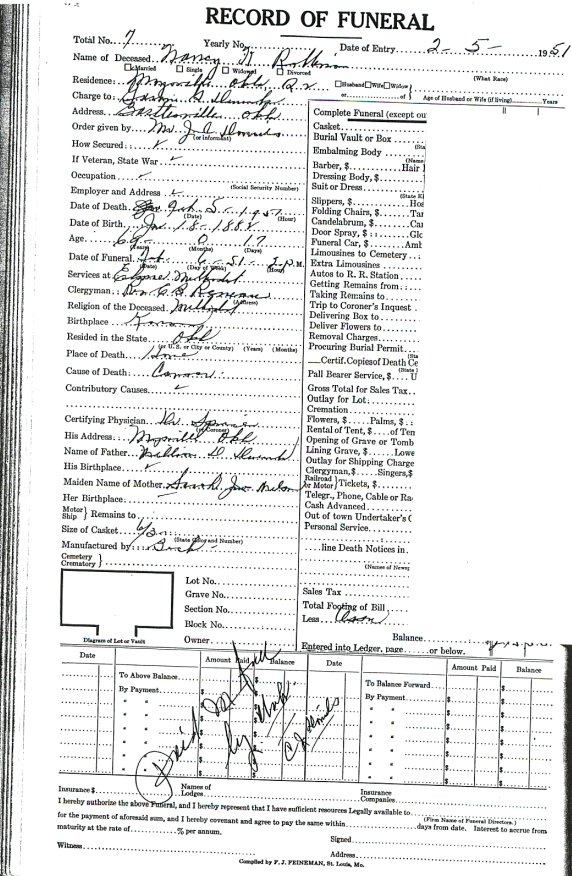 RECORD OF FUNERAL
Total No. 7 Yearly No. Date of Entry 2-5- 1951
Name of Deceased Nancy
Married Single Widowed Divorced (What Race)
Residence: Okla
Husband Wife Widow or of Age of Husband or Wife (if living) Years
Charge to
Address Bartlesville, Okla
Order given by Mr.
(or Informant)
How Secured
If Veteran, State War
Occupation
(Social Security Number)
Employer and Address
Date of Death Feb 5-1951
(Date) (Hour)
Date of Birth Jan. 18-1882
Age 69 0 17
(Years) (Months) (Days)
Date of Funeral Feb 6-51 2-P.M.
(Date) (Day of Week) (Hour)
Services at Methodist
Clergyman Rev. C. B.
(Address)
Religion of the Deceased Methodist
Birthplace
Resided in the State Okla
(or U. S. City or County) (Years) (Months)
Place of Death Home
Cause of Death Cancer
Contributory Causes
Certifying Physician Dr. Spencer
(or Coroner)
His Address Okla
Name of Father William D.
His Birthplace
Maiden Name of Mother Sarah Jane Nelson
Her Birthplace
Motor Ship Remains to
Size of Casket 6/3
(State Color and Number)
Manufactured by
Cemetery Crematory
Lot No.
Grave No.
Section No.
Block No.
Owner
Diagram of Lot or Vault
Complete Funeral (except ou
Casket
Burial Vault or Box
(Sta
Embalming Body
(Name
Barber, $ Hair
Dressing Body, $
Suit or Dress
(State K
Slippers, $ Hos
Folding Chairs, $ Tar
Candelabrum, $ Ca
Door Spray, $ Glo
Funeral Car, $ Amb
Limousines to Cemetery
Extra Limousines
Autos to R. R. Station
Getting Remains from
Taking Remains to
Trip to Coroner's Inquest
Delivering Box to
Deliver Flowers to
Removal Charges
Procuring Burial Permit
(Sta
Certif. Copies of Death Ce
(State
Pall Bearer Service, $ U
Gross Total for Sales Tax
Outlay for Lot
Cremation
Flowers, $ Palms, $
Rental of Tent, $ of Ten
Opening of Grave or Tomb
Lining Grave, $ Lowe
Outlay for Shipping Charge
Clergyman, $ Singers, $
Railroad or Motor Tickets, $
Telegr., Phone, Cable or Ra
Cash Advanced
Out of town Undertaker's C
Personal Service
line Death Notices in
(Names of Newsp
Sales Tax
Total Footing of Bill
Less
Balance
Entered into Ledger, page or below.
Date Amount Paid Balance Date Amount Paid Balance
To Above Balance $ To Balance Forward $
By Payment $ By Payment $
Paid
Insurance $ Names of Lodges Insurance Companies
I hereby authorize the above Funeral, and I hereby represent that I have sufficient resources Legally available to
(Firm Name of Funeral Directors.)
for the payment of aforesaid sum, and I hereby covenant and agree to pay the same within days from date. Interest to accrue from
maturity at the rate of % per annum.
Signed
Witness
Address
Compiled by F. J. FEINEMAN, St. Louis, Mo.